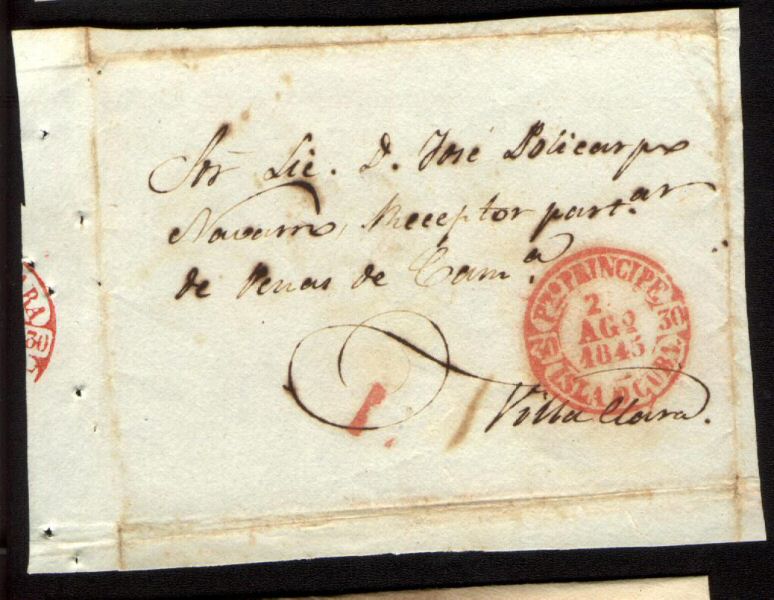 Sor Lic. D. José Policarpo
Navarro, Receptor part.ar
de Penas de Cam.a
Villa Clara.
PTO. PRINCIPE.
30
2
AGO
1845
30
ISLA D CUBA.
1
ARA
30